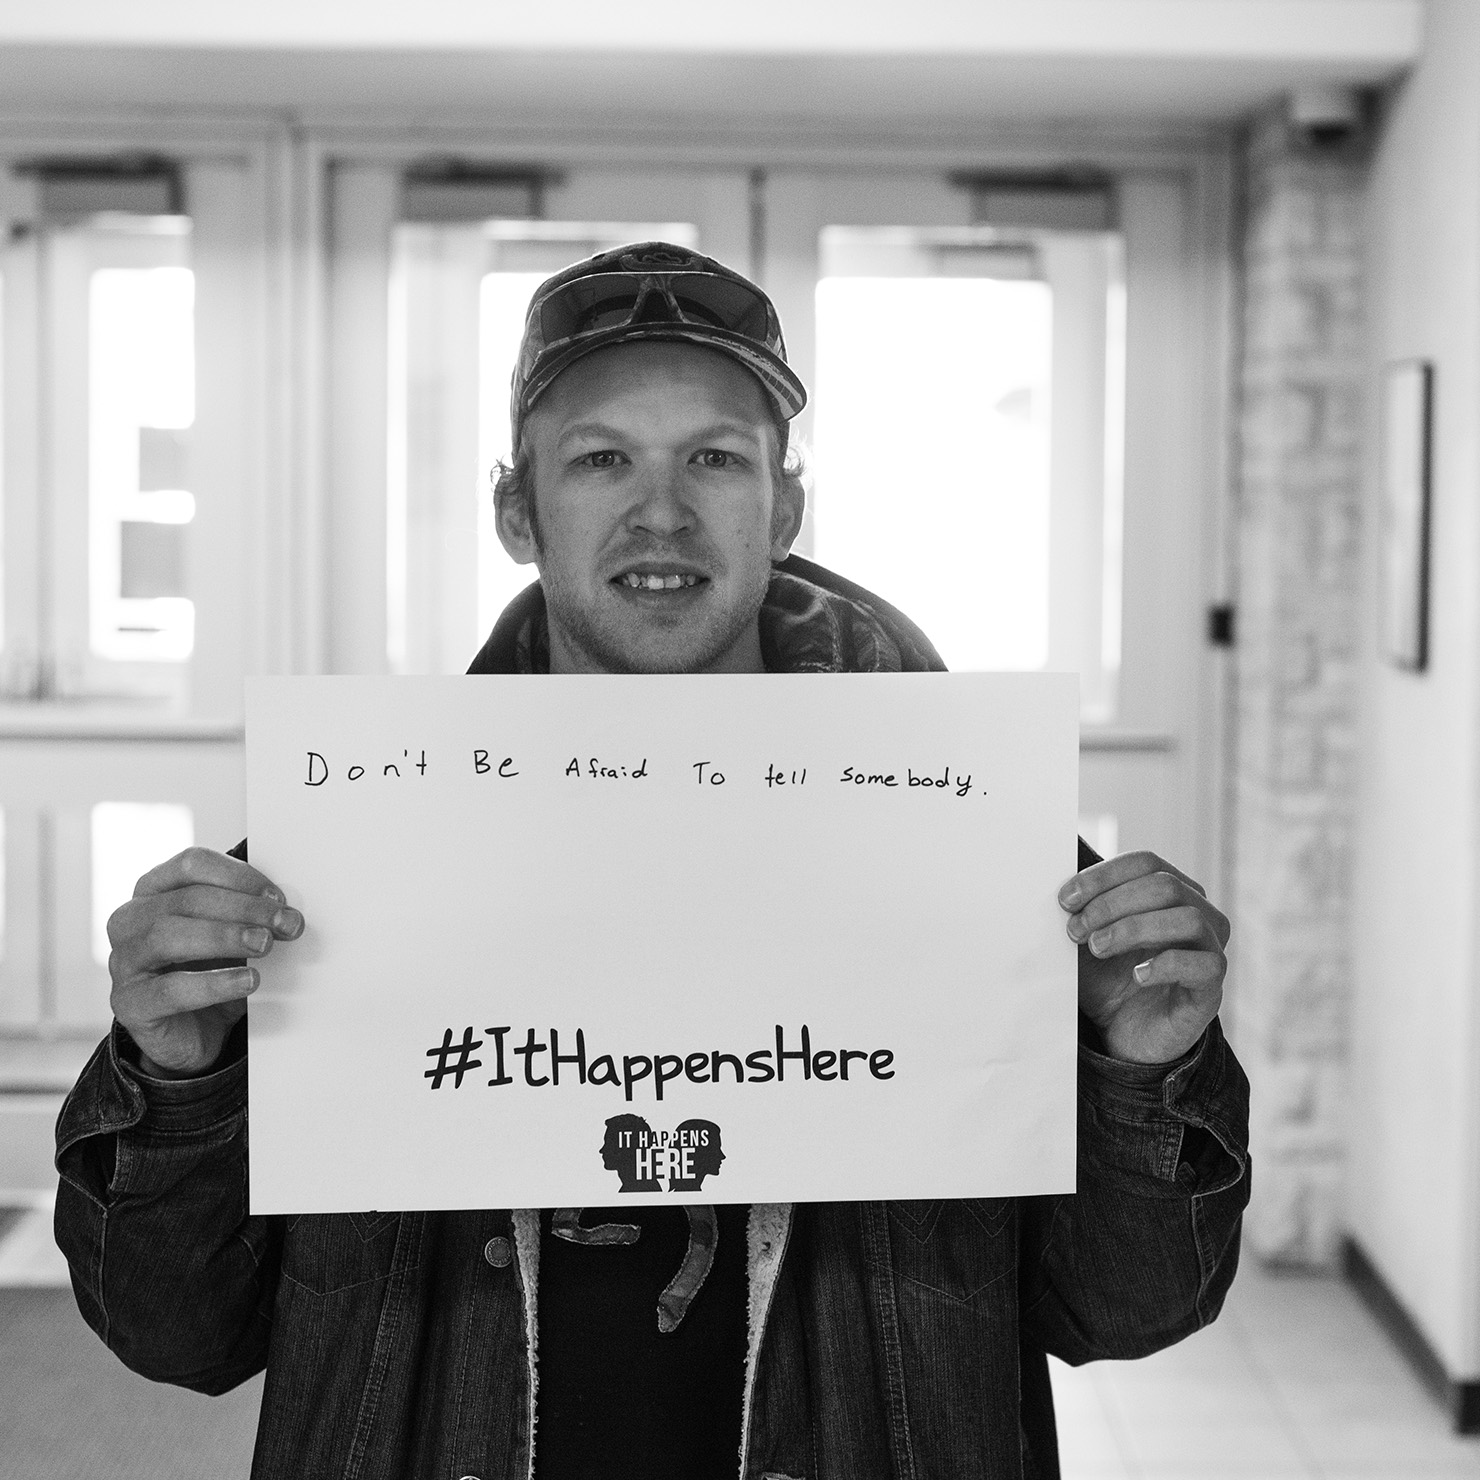 Don't Be Afraid To tell somebody.
#ItHappensHere
IT HAPPENS
HERE